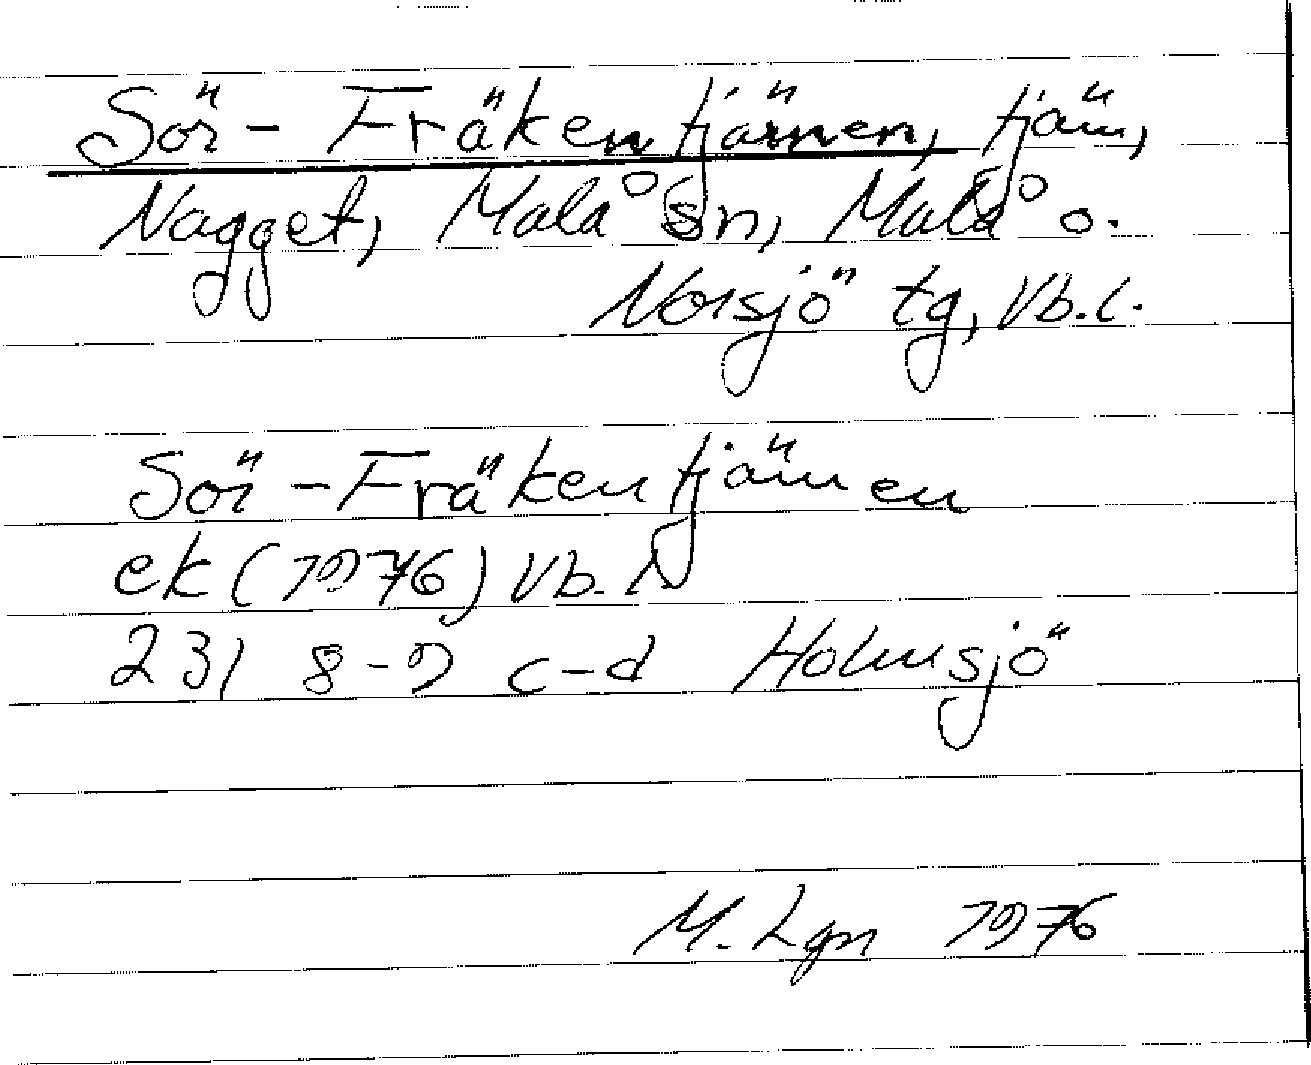 Sör-Fräkentjärnen, tjärn,
Nagget, Malå sn, Malå o.
Norsjö tg, Vb.l.
Sör-Fräkentjärnen
ek (1976) Vb. l
23I 8-9 c-d Holmsjö
M. Lgn 1976